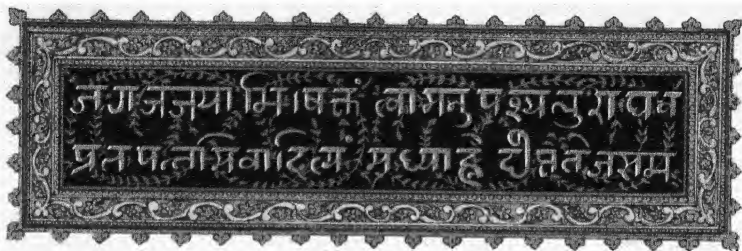 जगजजयाभिषिक्तं त्वामनुपश्यतु राघव
प्रतपन्तमिवादित्यं मध्याह्न दीप्ततेजसम